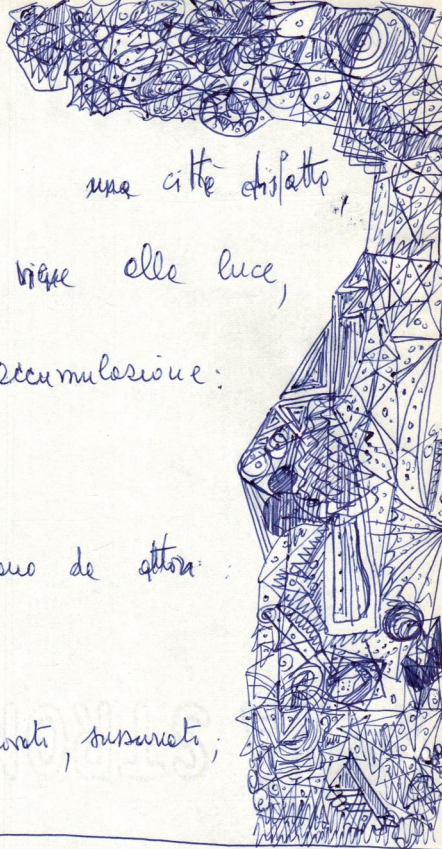 una città disfatta,
viene alla luce,
accumulazione:
da attori:
sussurrati;